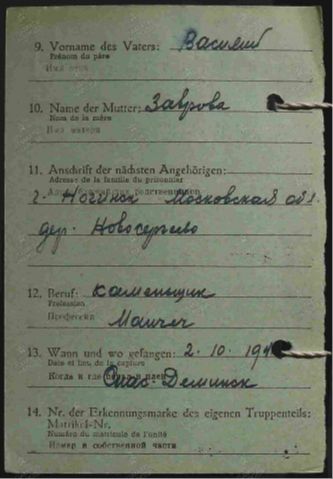 9. Vorname des Vaters: Василий
Prénom du père
Имя отца
10. Name der Mutter: Заврова
Nom de la mère
Имя матери
11. Anschrift der nächsten Angehörigen:
Adresse de la famille du prisonnier
г. Ногинск Московская обл.
дер. Новосергеево
12. Beruf: каменьщик
Profession
Професия
Maurer
13. Wann und wo gefangen: 2. 10. 194
Date et lieu de la capture
Когда и где
Деминск
14. Nr. der Erkennungsmarke des eigenen Truppenteils:
Matrikel-Nr.
Numéro du matricule de l'unité
Номер в собственной части